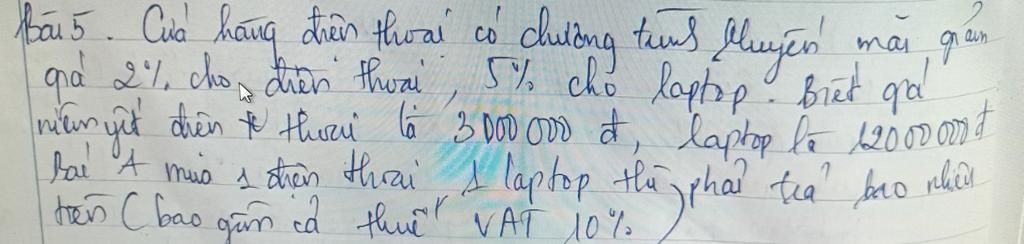 Bài 5. Cửa hàng điện thoại có chương trình khuyến mãi giảm
giá 2% cho điện thoại, 5% cho laptop. Biết giá
niêm yết điện thoại là 3000000 đ, laptop là 12000000 đ
Bác A mua 1 điện thoại 1 laptop thì phải trả bao nhiêu
tiền (bao gồm cả thuế VAT 10%)